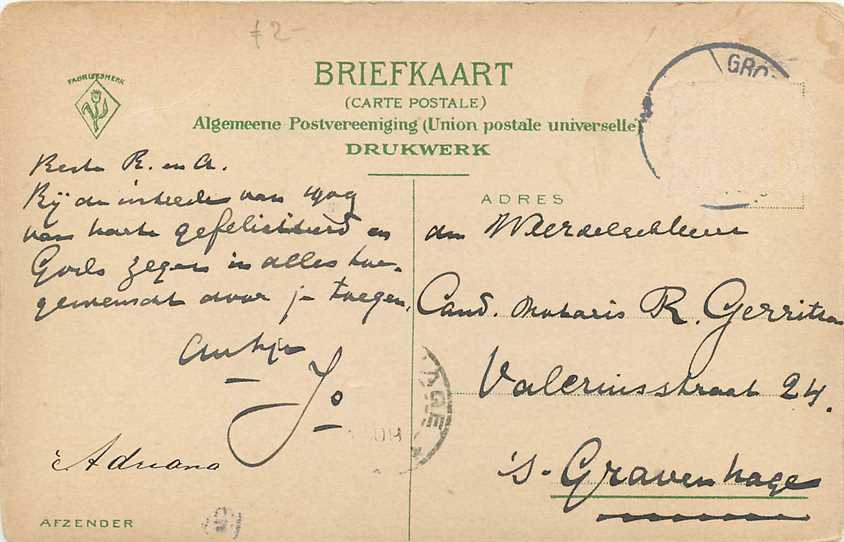 ƒ 2-
FABRIEKSMERK
BRIEFKAART
(CARTE POSTALE)
Algemeene Postvereeniging (Union postale universelle)
DRUKWERK
Beste R. en A.
Bij de intrede van 1909
van harte gefeliciteerd en
Gods zegen in alles toe-
gewenscht door je
Jo
Adriana
AFZENDER
GRO
ADRES
den Weledelen heer
Cand. Notaris R. Gerritsen
Valeriusstraat 24.
's-Gravenhage